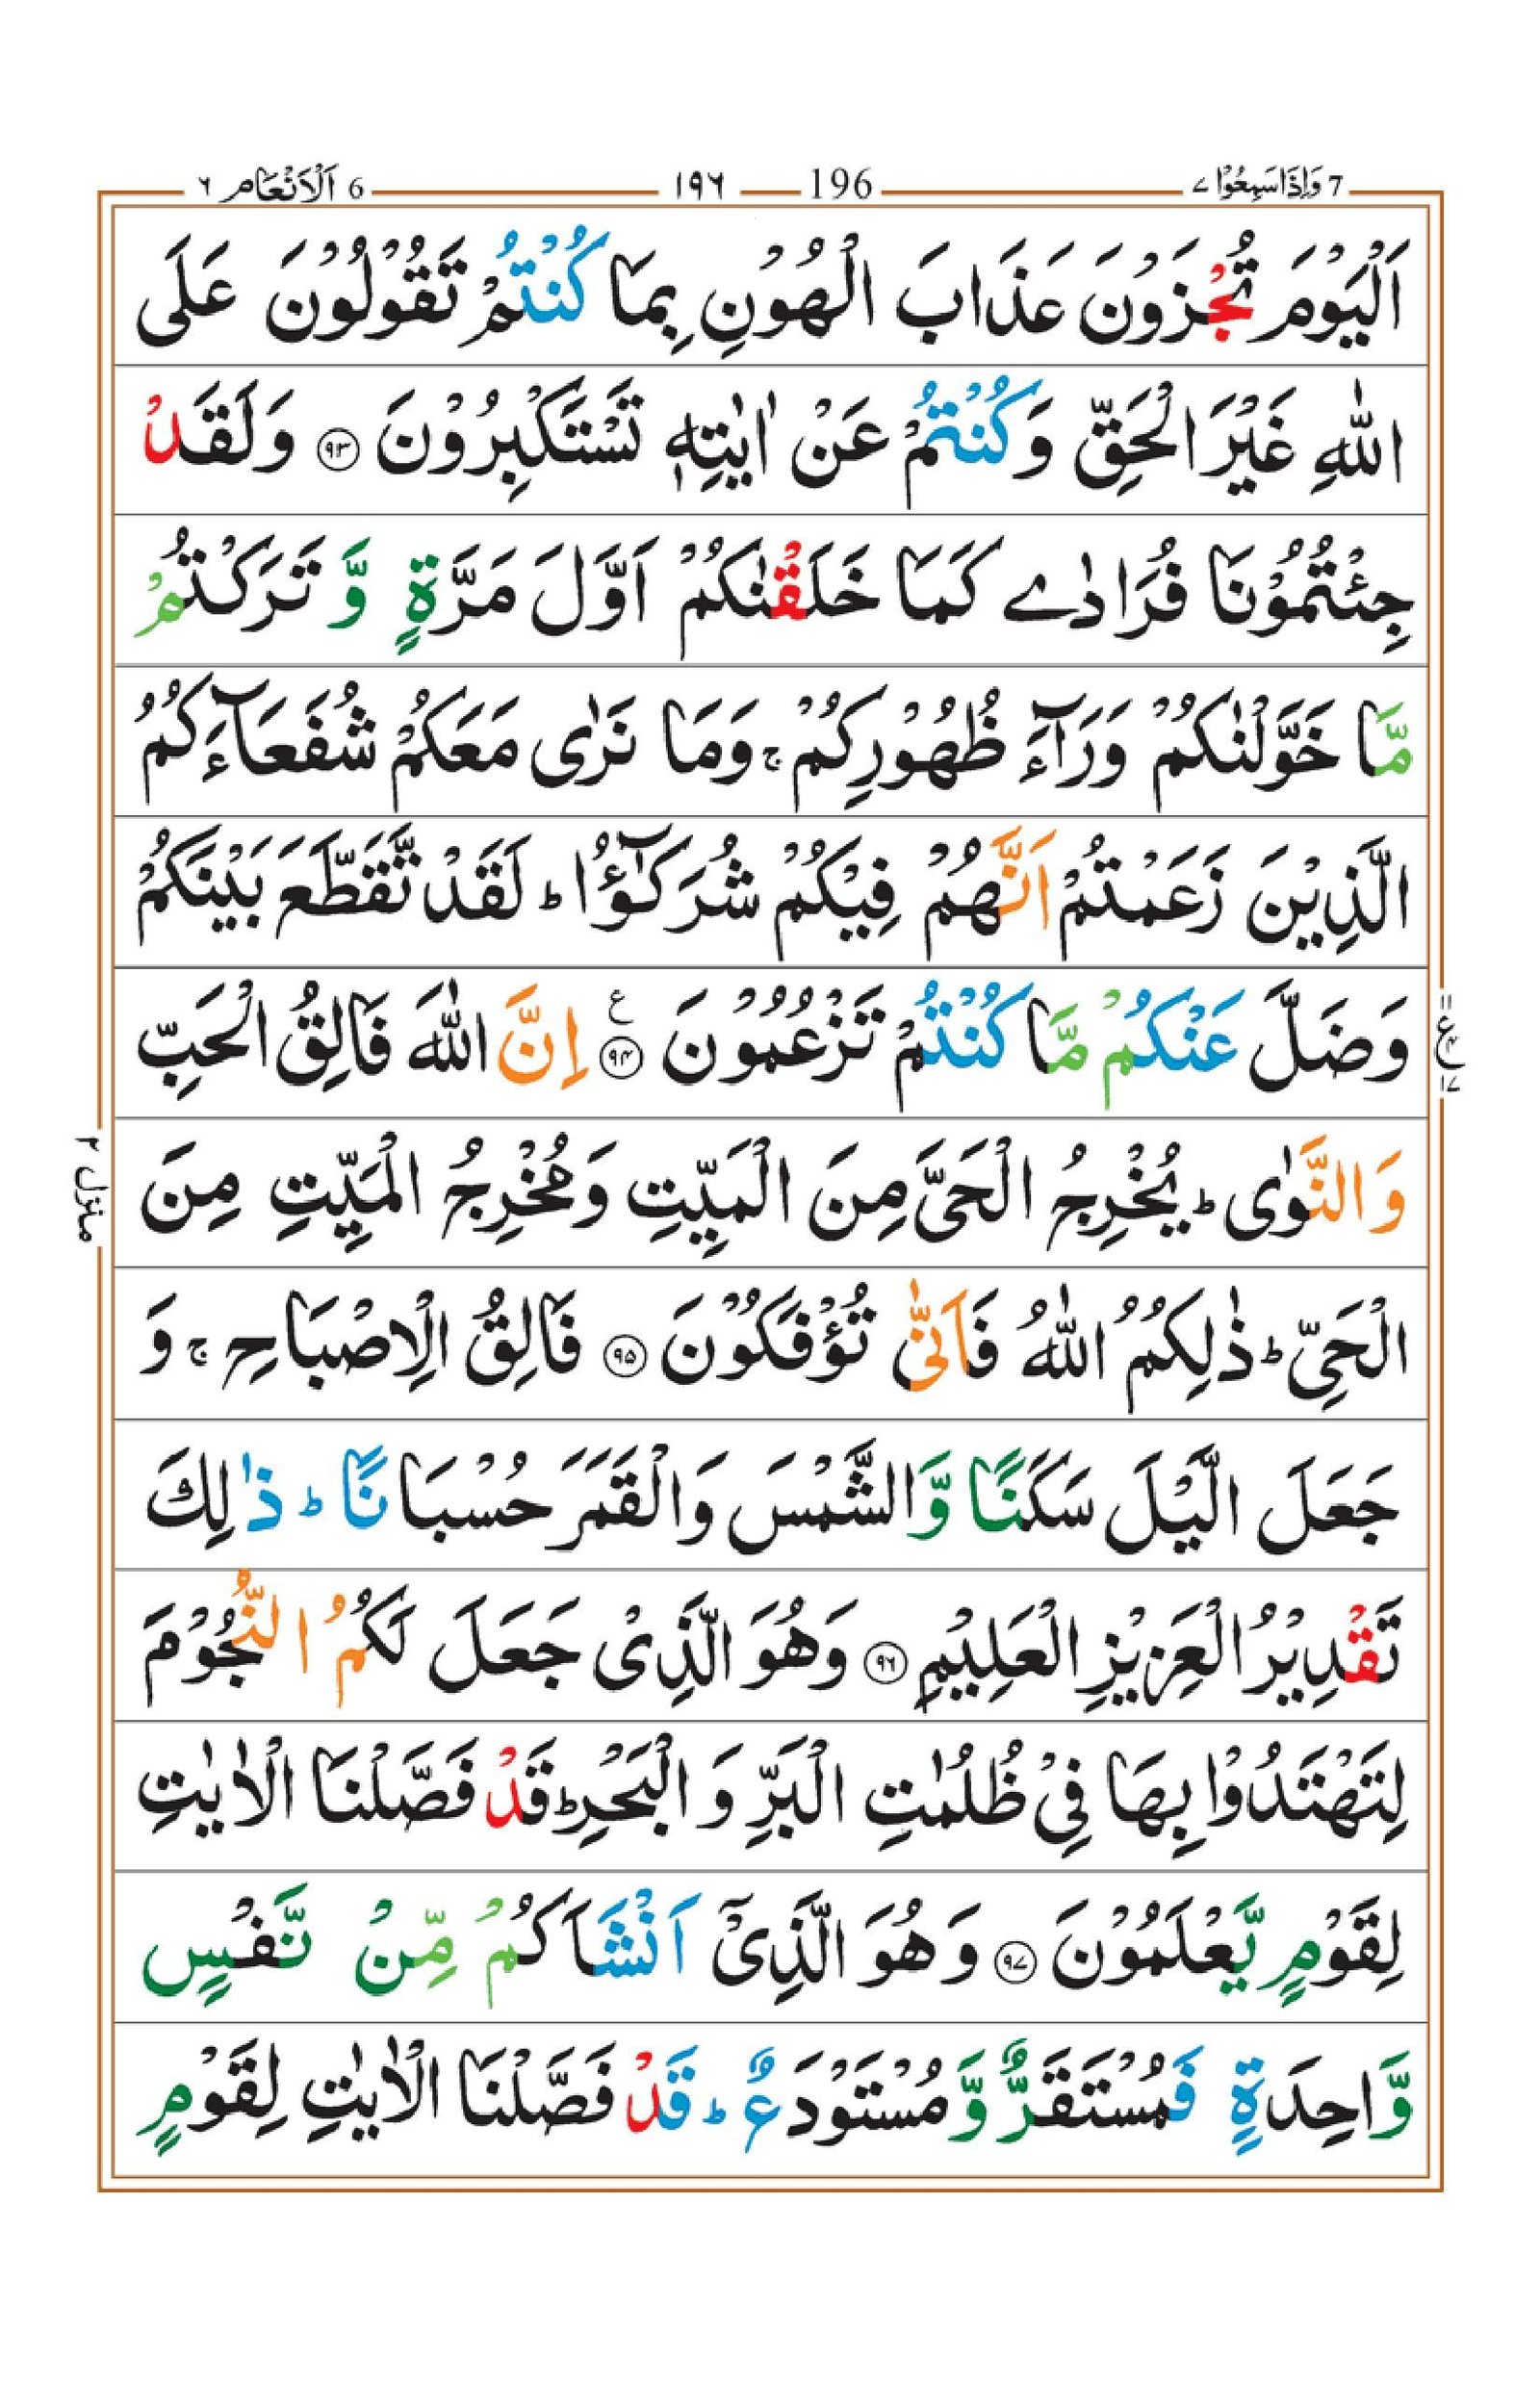 7 وَاِذَا سَمِعُوْا ٧ 196 ١٩٦ 6 اَلْاَنْعَام ٦
اَلْيَوْمَ تُجْزَوْنَ عَذَابَ الْهُوْنِ بِمَا كُنْتُمْ تَقُوْلُوْنَ عَلَى
اللّٰهِ غَيْرَ الْحَقِّ وَكُنْتُمْ عَنْ اٰيٰتِهٖ تَسْتَكْبِرُوْنَ ۹۳ وَلَقَدْ
جِئْتُمُوْنَا فُرَادٰے كَمَا خَلَقْنٰكُمْ اَوَّلَ مَرَّةٍ وَّ تَرَكْتُمْ
مَّا خَوَّلْنٰكُمْ وَرَآءَ ظُهُوْرِكُمْ ۚ وَمَا نَرٰى مَعَكُمْ شُفَعَآءَكُمُ
الَّذِيْنَ زَعَمْتُمْ اَنَّهُمْ فِيْكُمْ شُرَكٰٓؤُا ؕ لَقَدْ تَّقَطَّعَ بَيْنَكُمْ
وَضَلَّ عَنْكُمْ مَّا كُنْتُمْ تَزْعُمُوْنَ ۹۴ ع اِنَّ اللّٰهَ فَالِقُ الْحَبِّ
ع ١١ ۴ ١٧
وَالنَّوٰى ؕ يُخْرِجُ الْحَيَّ مِنَ الْمَيِّتِ وَمُخْرِجُ الْمَيِّتِ مِنَ
منزل ٢
الْحَيِّ ؕ ذٰلِكُمُ اللّٰهُ فَاَنّٰى تُؤْفَكُوْنَ ۹۵ فَالِقُ الْاِصْبَاحِ ۚ وَ
جَعَلَ الَّيْلَ سَكَنًا وَّالشَّمْسَ وَالْقَمَرَ حُسْبَانًا ؕ ذٰلِكَ
تَقْدِيْرُ الْعَزِيْزِ الْعَلِيْمِ ۹۶ وَهُوَ الَّذِىْ جَعَلَ لَكُمُ النُّجُوْمَ
لِتَهْتَدُوْا بِهَا فِىْ ظُلُمٰتِ الْبَرِّ وَ الْبَحْرِ ؕ قَدْ فَصَّلْنَا الْاٰيٰتِ
لِقَوْمٍ يَّعْلَمُوْنَ ۹۷ وَهُوَ الَّذِىْٓ اَنْشَاَكُمْ مِّنْ نَّفْسٍ
وَّاحِدَةٍ فَمُسْتَقَرٌّ وَّ مُسْتَوْدَعٌ ؕ قَدْ فَصَّلْنَا الْاٰيٰتِ لِقَوْمٍ